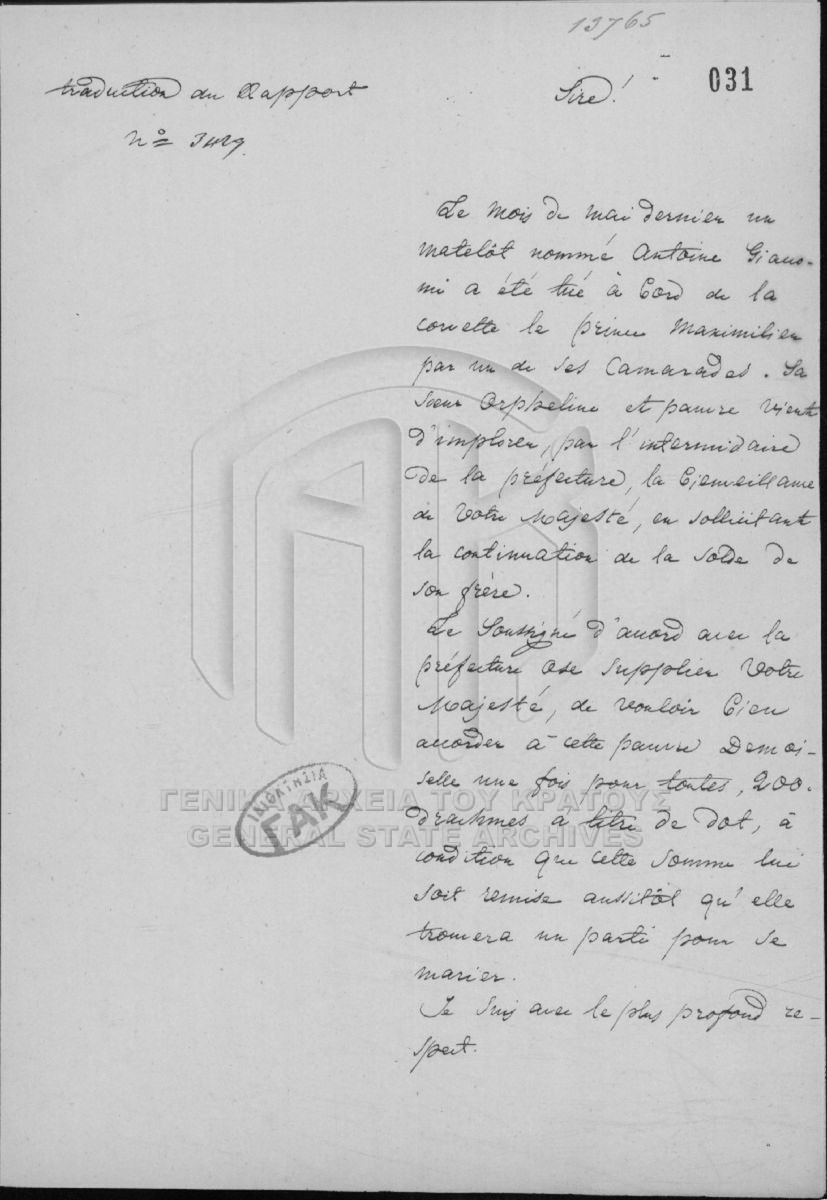 13765
031
traduction du Rapport
Nº 3429.
Sire!
Le mois de mai dernier un
matelôt nommé Antoine Giano-
mi a été tué à bord de la
corvette le prince Maximilien
par un de ses Camarades. Sa
sœur Orpheline et pauvre vient
d'implorer, par l'intermidaire
de la préfecture, la bienveillance
de Votre Majesté, en sollicitant
la continuation de la solde de
son frère.
Le Soussigné d'accord avec la
préfecture Ose supplier Votre
Majesté, de vouloir bien
accorder à cette pauvre Demoi-
selle une fois pour toutes, 200.
drachmes a titre de dot, à
condition que cette somme lui
soit remise aussitôt qu'elle
trouvera un parti pour se
marier.
Je suis avec le plus profond re-
spect.
ΙΔΙΟΚΤΗΣΙΑ
ΓΑΚ
ΓΕΝΙΚΑ ΑΡΧΕΙΑ ΤΟΥ ΚΡΑΤΟΥΣ
GENERAL STATE ARCHIVES